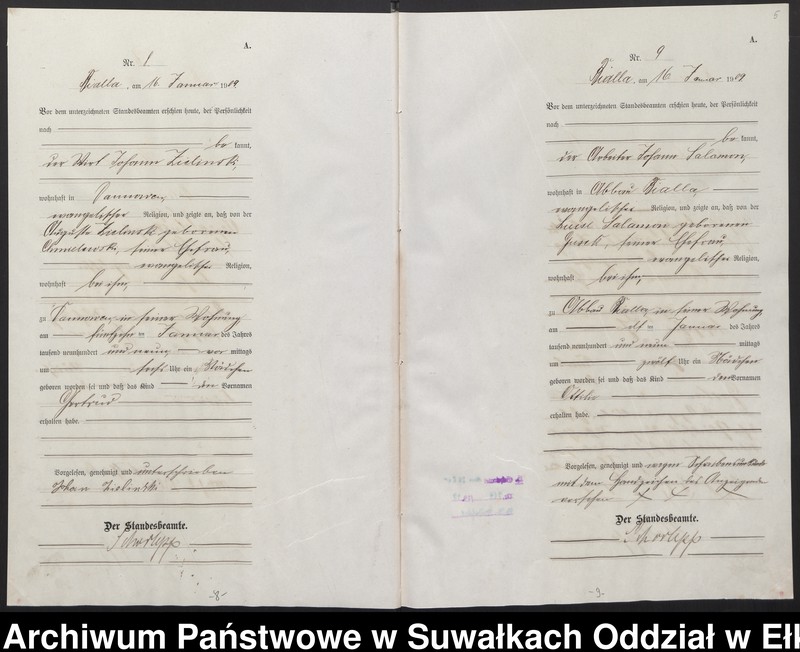 A.
Nr. 1
Bialla, am 16 Januar 1909
Vor dem unterzeichneten Standesbeamten erschien heute, der Persönlichkeit
nach
be kannt,
der Wirt Johann Zielinski,
wohnhaft in
evangelischer Religion, und zeigte an, daß von der
Auguste Zielinski geborenen
seiner Ehefrau,
evangelischer Religion,
wohnhaft bei ihm,
zu in seiner Wohnung
am fünfzehn ten Januar des Jahres
tausend neunhundert und neun vor mittags
um sechs Uhr ein Mädchen
geboren worden sei und daß das Kind den Vornamen
Gertrud
erhalten habe.
Vorgelesen, genehmigt und unterschrieben
Johan Zielinski
Der Standesbeamte.
-8-
5
A.
Nr. 9
Bialla, am 16 Januar 1909
Vor dem unterzeichneten Standesbeamten erschien heute, der Persönlichkeit
nach
be kannt,
der Arbeiter Johann Salamon,
wohnhaft in Abbau Bialla,
evangelischer Religion, und zeigte an, daß von der
Luise Salamon geborenen
seiner Ehefrau,
evangelischer Religion,
wohnhaft bei ihm,
zu Abbau Bialla, in seiner Wohnung
am elf ten Januar des Jahres
tausend neunhundert und neun mittags
um zwölf Uhr ein Mädchen
geboren worden sei und daß das Kind den Vornamen
Ottilie
erhalten habe.
Vorgelesen, genehmigt und wegen Schreibensunkunde
mit dem Handzeichen des Anzeigenden
versehen + + +
Der Standesbeamte.
-9-
Archiwum Państwowe w Suwałkach Oddział w Ełk